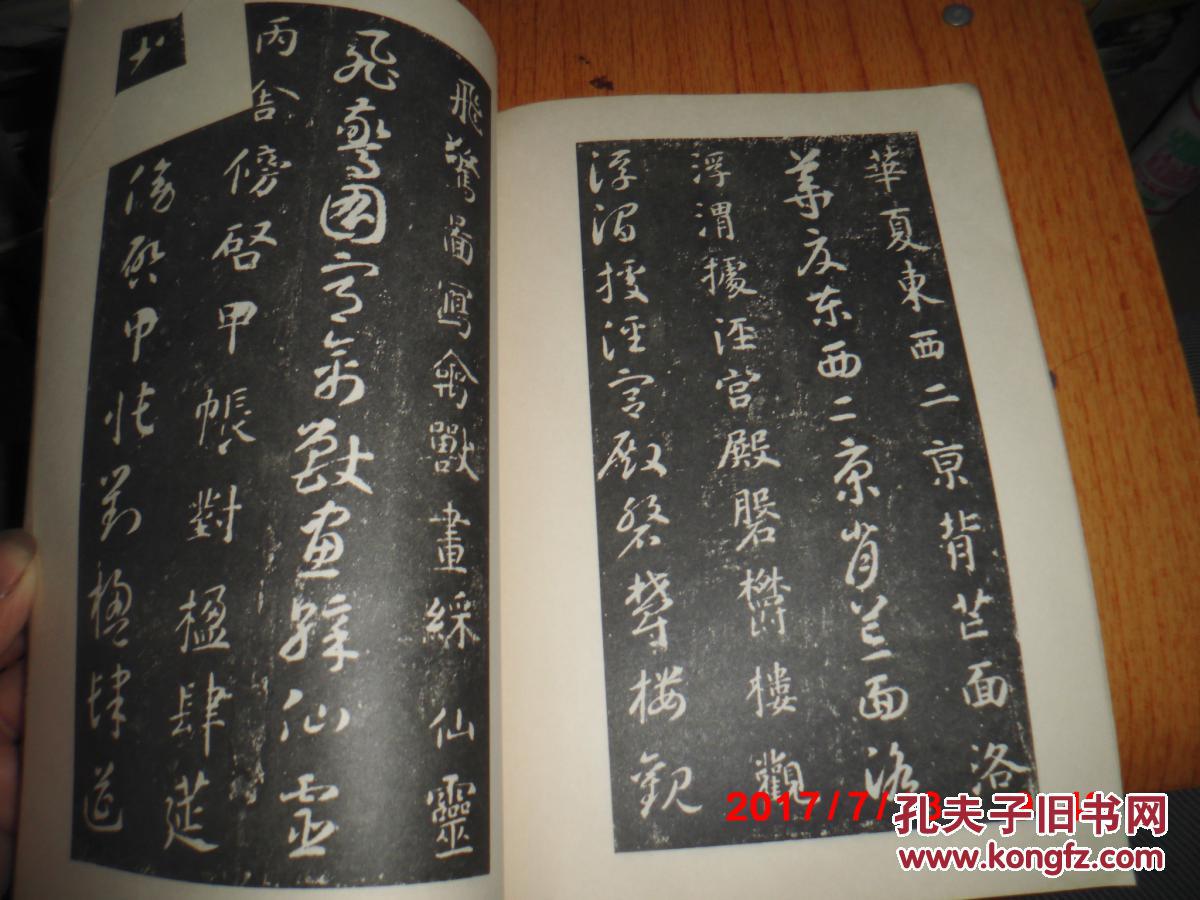 華夏東西二京背芒面洛
華夏東西二京背芒面洛
浮渭據涇宮殿磐欝樓觀
浮渭據涇宮殿磐欝樓觀
飛驚圖寫禽獸畫綵仙靈
飛驚圖寫禽獸畫綵仙靈
丙舍傍啓甲帳對楹肆莚
傍啓甲帳對楹肆莚
2017/7/
孔夫子旧书网
www.kongfz.com